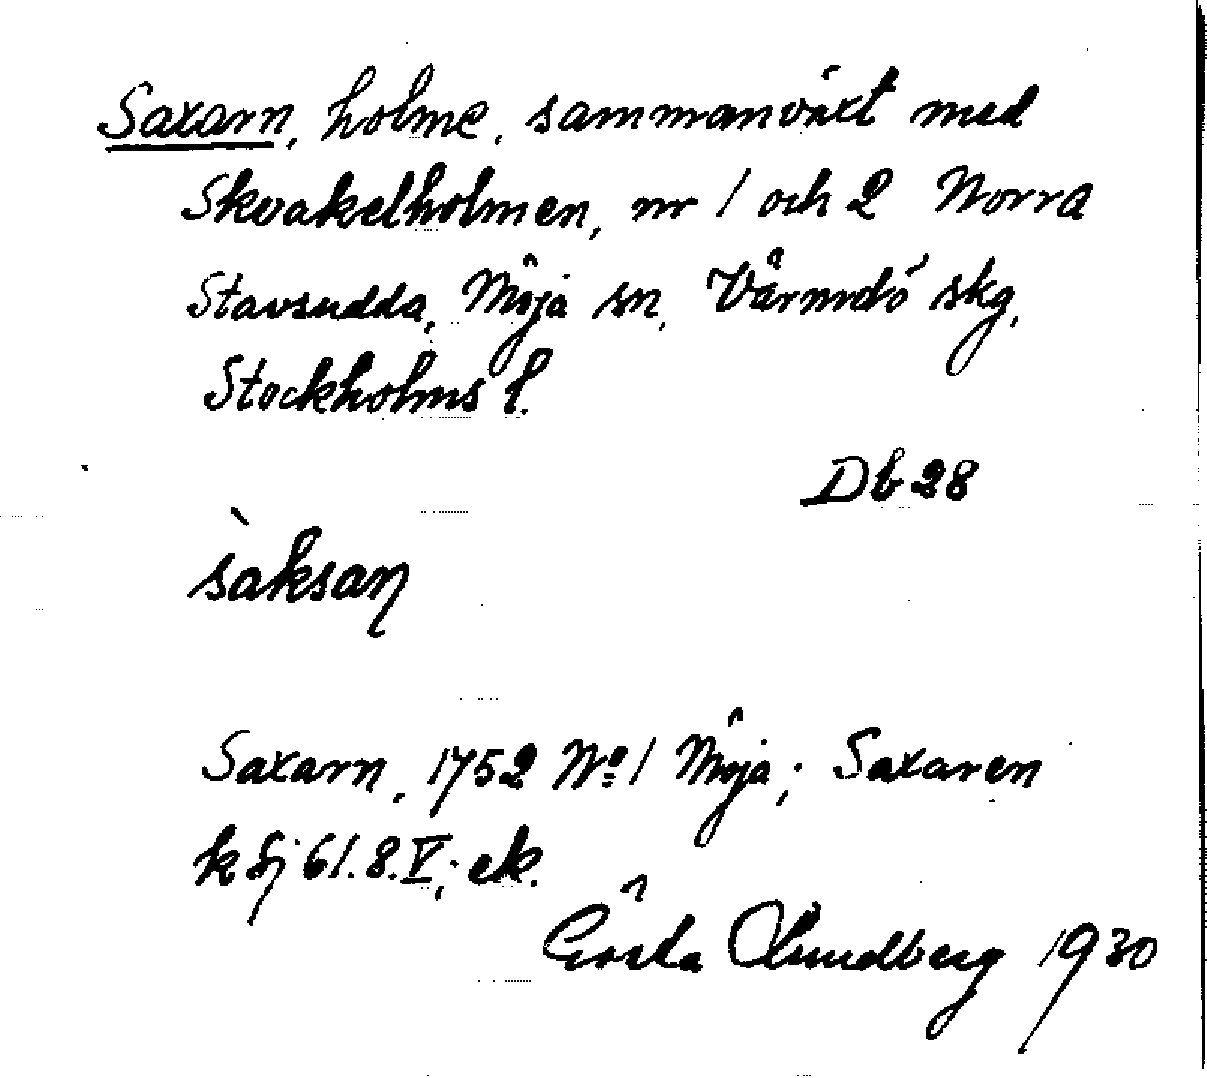 Saxarn, holme, sammanväxt med
Skvakelholmen, nr 1 och 2 Norra
Stavsudda, Möja sn, Värmdö skg,
Stockholms l.
Db 28
sàksaɳ
Saxarn, 1752 No 1 Möja; Saxaren
ksj 61. 8. V; ek.
Gösta Lundberg 1930